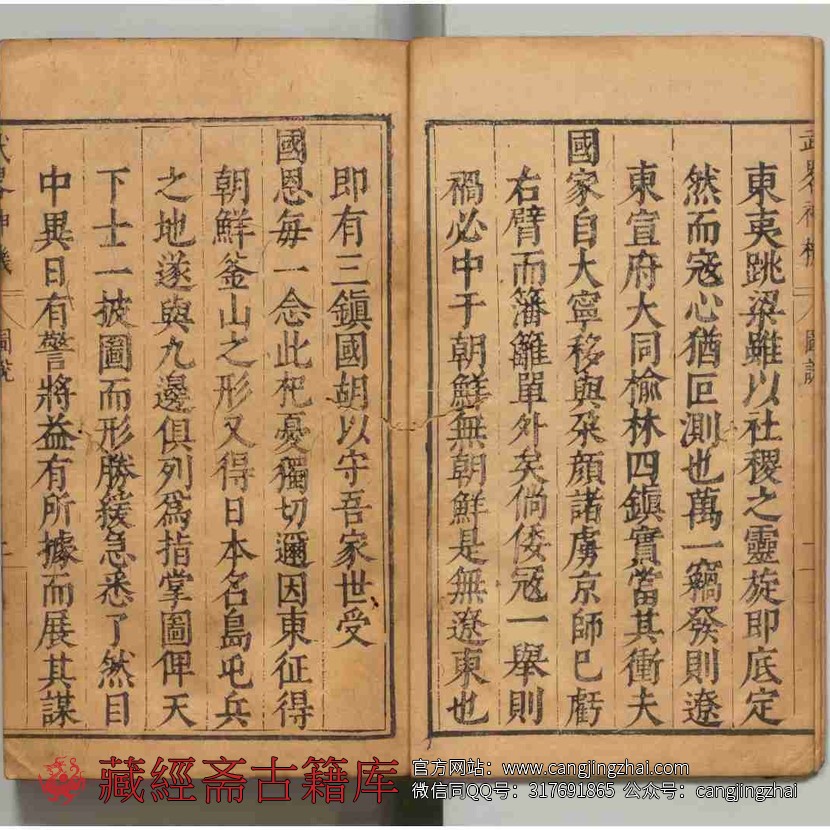 東夷跳梁雖以社稷之靈旋即底定
然而宼心猶叵測也萬一竊發則遼
東宣府大同榆林四鎮實當其衝夫
國家自大寧移與朶顏諸虜京師已虧
右臂而籓籬單外矣倘倭宼一舉則
禍必中于朝鮮無朝鮮是無遼東也
即有三鎮國胡以守吾家世受
國恩每一念此杞憂獨切邇因東征得
朝鮮釜山之形又得日本名島屯兵
之地遂與九邊俱列爲指掌圖俾天
下士一披圖而形勝緩急悉了然目
中異日有警將益有所據而展其謀
圖說
藏經斋古籍库
官方网站：www.cangjingzhai.com
微信同QQ号：317691865 公众号：cangjingzhai